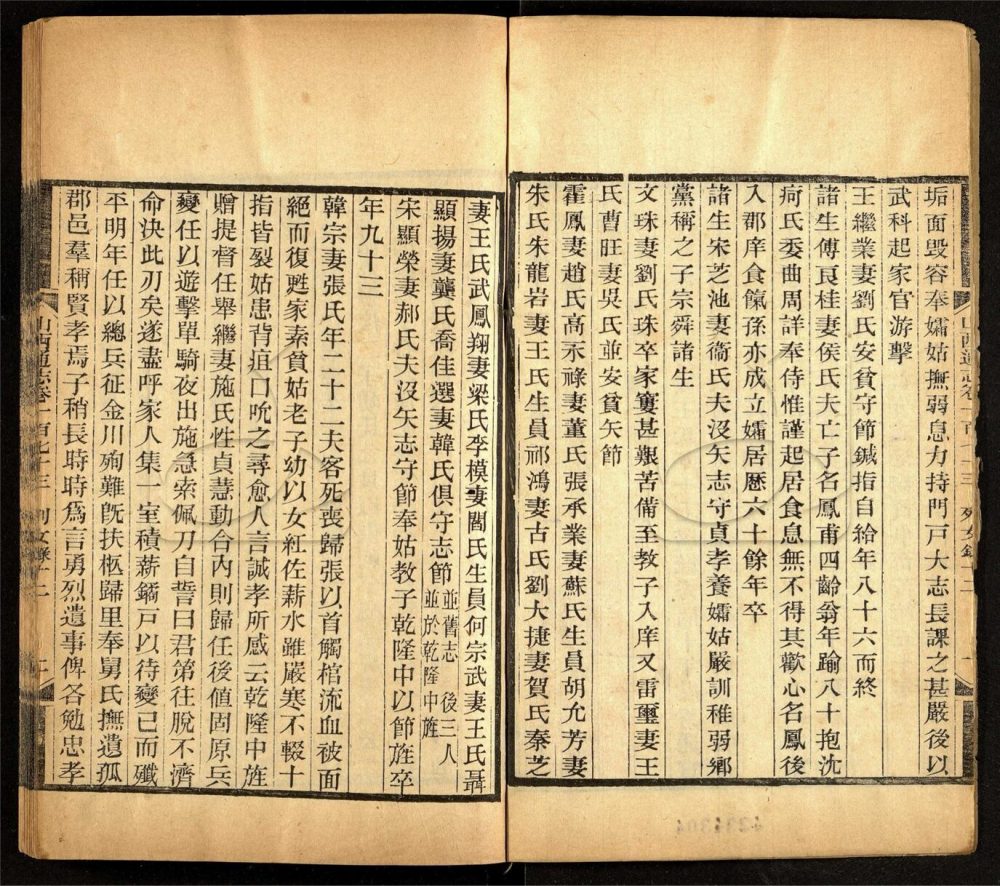 垢面毀容奉孀姑撫弱息力持門戸大志長課之甚嚴後以
武科起家官游擊
王繼業妻劉氏安貧守節鍼指自給年八十六而終
諸生傅良桂妻侯氏夫亡子名鳳甫四齡翁年踰八十抱沈
疴氏委曲周詳奉侍惟謹起居食息無不得其歡心名鳳後
入郡庠食餼孫亦成立孀居歷六十餘年卒
諸生宋芝池妻衞氏夫沒矢志守貞孝養孀姑嚴訓稚弱鄉
黨稱之子宗舜諸生
文珠妻劉氏珠卒家窶甚艱苦備至教子入庠又雷璽妻王
氏曹旺妻吳氏並安貧矢節
霍鳳妻趙氏高永祿妻董氏張承業妻蘇氏生員胡允芳妻
朱氏朱龍岩妻王氏生員祁鴻妻古氏劉大捷妻賀氏秦芝
山西通志卷一百七十三 列女錄十二 二
妻王氏武鳳翔妻梁氏李模妻閻氏生員何宗武妻王氏聶
顯揚妻龔氏喬佳選妻韓氏俱守志節並舊志 後三人並於乾隆中旌
宋顯榮妻郝氏夫沒矢志守節奉姑教子乾隆中以節旌卒
年九十三
韓宗妻張氏年二十二夫客死喪歸張以首觸棺流血被面
絕而復甦家素貧姑老子幼以女紅佐薪水雖嚴寒不輟十
指皆裂姑患背疽口吮之尋愈人言誠孝所感云乾隆中旌
贈提督任舉繼妻施氏性貞慧動合內則歸任後值固原兵
變任以遊擊單騎夜出施急索佩刀自誓曰君第往脫不濟
命決此刃矣遂盡呼家人集一室積薪鐍戸以待變已而殲
平明年任以總兵征金川殉難旣扶柩歸里奉舅氏撫遺孤
郡邑羣稱賢孝焉子稍長時時爲言勇烈遺事俾各勉忠孝